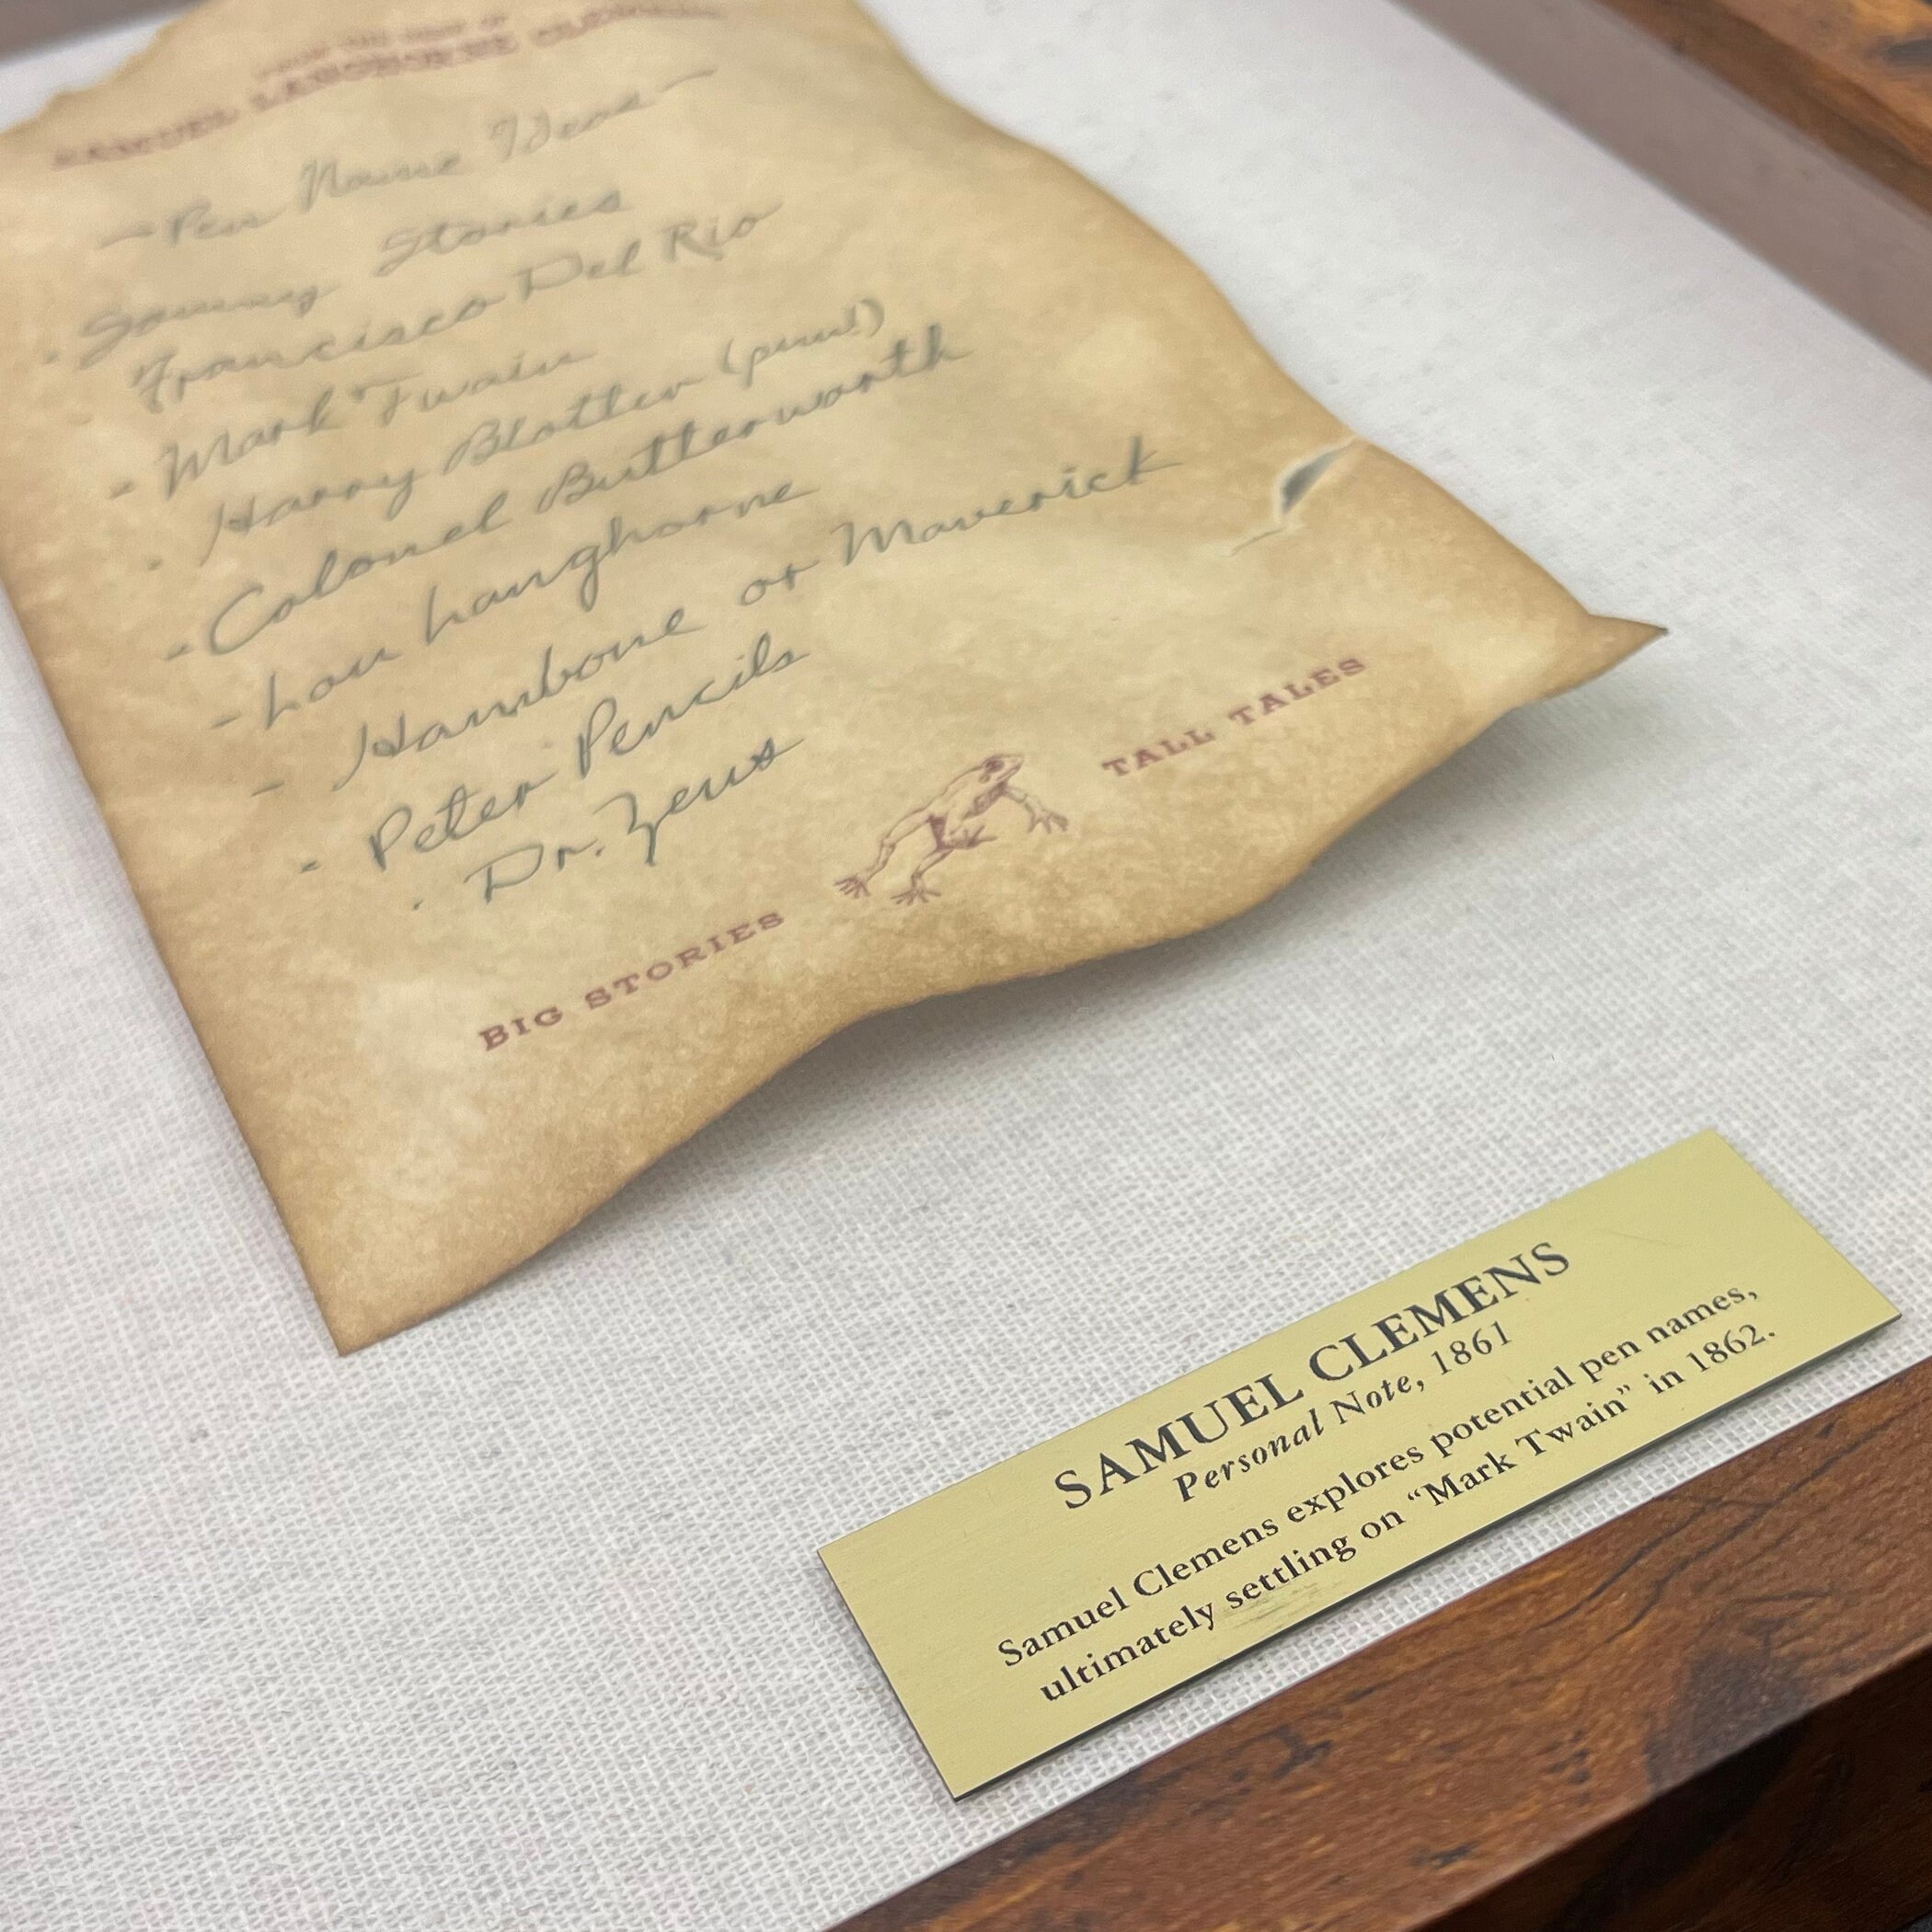 FROM THE DESK OF
SAMUEL LANGHORNE CLEMENS
~ Pen Name Ideas ~
- Sammy Stories
- Francisco Del Rio
- Mark Twain
- Harry Blotter (pun!)
- Colonel Butterworth
- Lou Langhorne
- Hambone or Maverick
- Peter Pencils
- Dr. Zeus
BIG STORIES TALL TALES
SAMUEL CLEMENS
Personal Note, 1861
Samuel Clemens explores potential pen names,
ultimately settling on “Mark Twain” in 1862.